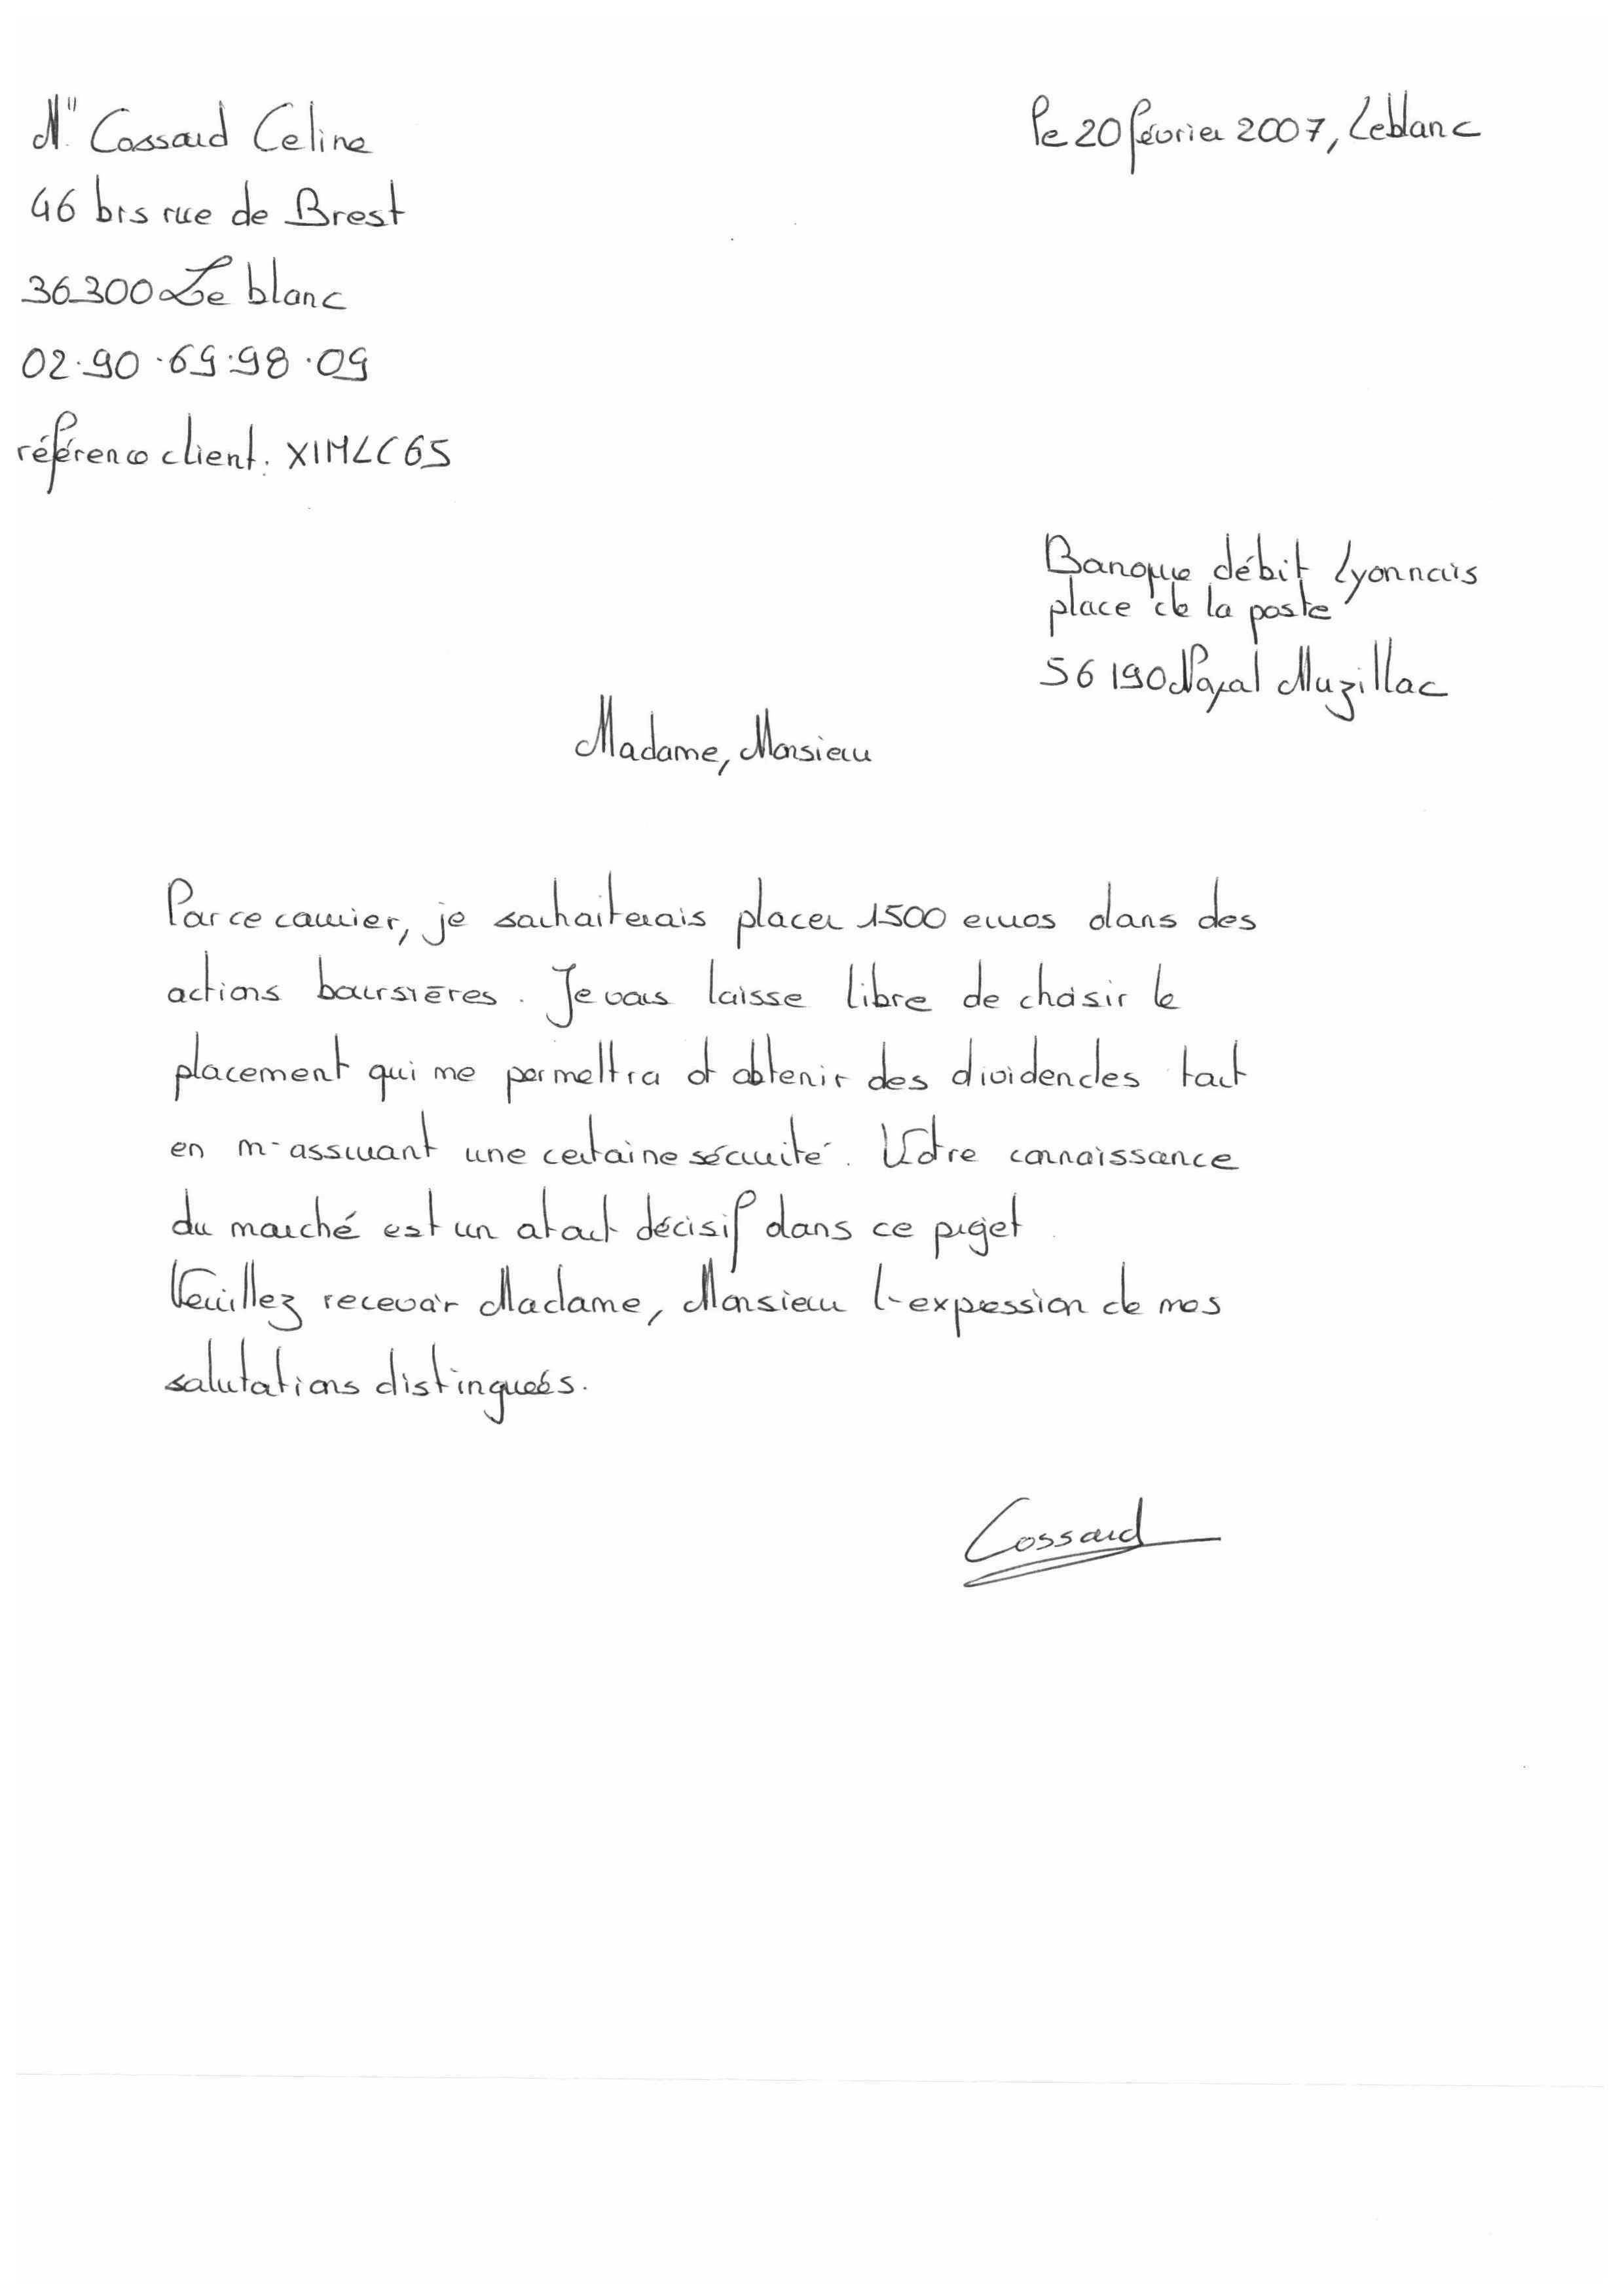 M" Cossard Celine
le 20 février 2007, Leblanc
46 bis rue de Brest
36300 Le blanc
02.90.69.98.09
référence client: XIMLC65
Banque débit Lyonnais
place de la poste
56190 Noyal Muzillac
Madame, Monsieur
Par ce courrier, je souhaiterais placer 1500 euros dans des
actions boursières. Je vous laisse libre de choisir le
placement qui me permettra d'obtenir des dividendes tout
en m'assurant une certaine sécurité. Votre connaissance
du marché est un atout décisif dans ce projet
Veuillez recevoir Madame, Monsieur l'expression de mes
salutations distinguées.
Cossard